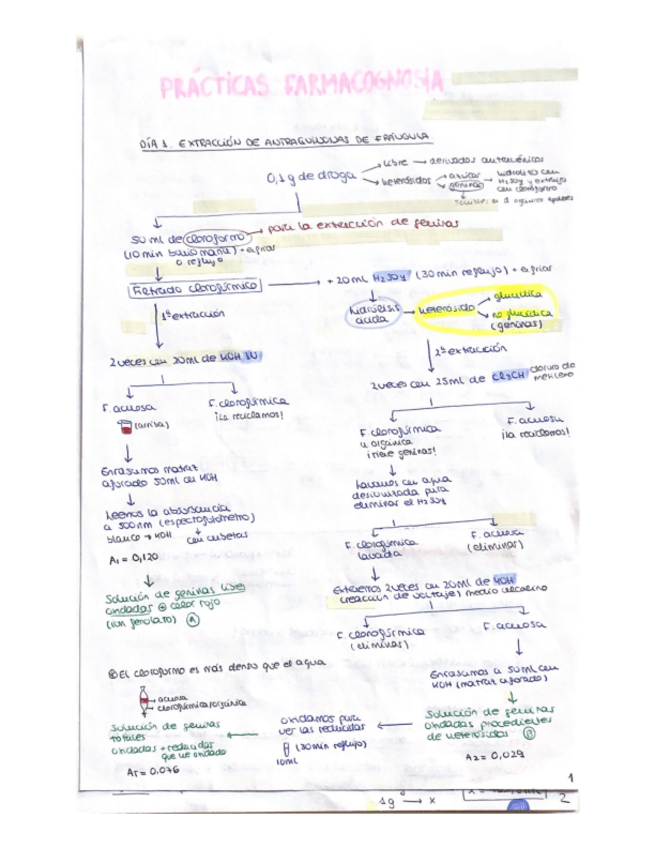 PRÁCTICAS FARMACOGNOSIA
DÍA 1. EXTRACCIÓN DE ANTRAQUINONAS DE FRÁNGULA
0,1g de droga
libre → derivados antracénicos
heterósidos → azúcar
geninas
hidrólisis con
H2SO4 y extraigo
con cloroformo
50 ml de cloroformo → para la extracción de geninas
(10 min baño maría) + enfriar
o reflujo
Filtrado clorofórmico → + 20ml H2SO4 (30 min reflujo) + enfriar
hidrólisis
ácida → heterósido
glucídica
no glucídica
(geninas)
1ª extracción
2 veces con 20ml de KOH 1N
F. acuosa
(arriba)
F. clorofórmica
¡la reciclamos!
Enrasamos matraz
aforado 50ml con KOH
Leemos la absorbancia
a 500nm (espectrofotómetro)
blanco → KOH
con cubetas
A1 = 0,120
Solución de geninas libres
oxidadas ⊕ color rojo
(ion fenolato) A
2ª extracción
2 veces con 25ml de Cl3CH
F clorofórmica
u orgánica
¡tiene geninas!
F. acuosa
¡la reciclamos!
Lavamos con agua
destilada para
eliminar el H2SO4
F. clorofórmica
lavada
F. acuosa
(eliminas)
Extraemos 2 veces con 20ml de KOH
medio alcalino
F clorofórmica
(eliminas)
F. acuosa
Enrasamos a 50ml con
KOH (matraz aforado)
Solución de geninas
oxidadas procedentes
de heterósidos B
A2 = 0,029
oxidamos para
ver las reducidas
(30min reflujo)
10ml
El cloroformo es más denso que el agua
acuosa
clorofórmica/orgánica
Solución de geninas
totales
oxidadas + reducidas
que he oxidado
AT = 0,076
1
1g → x
2